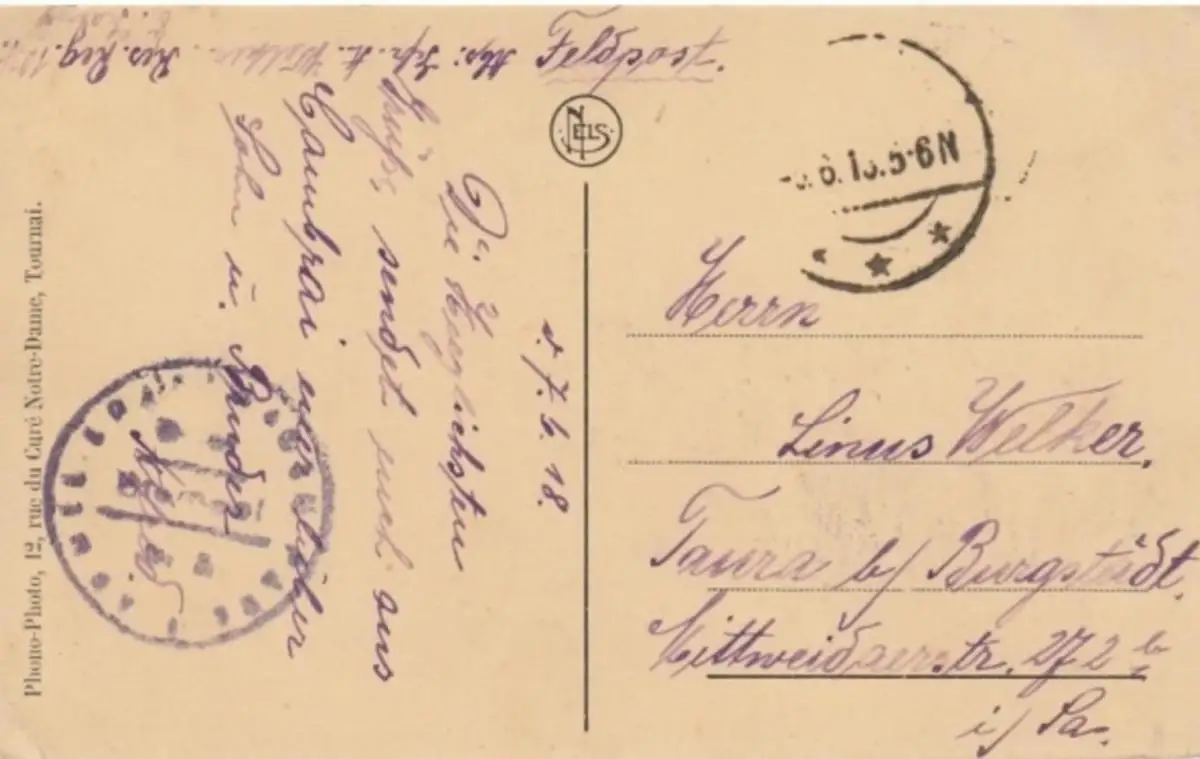 Feldpost.
Abs: H. Welker. Res. Reg.
NELS
8.5-6N
d. 7. 6. 18.
Die herzlichsten
Grüße sendet euch aus
Cambrai euer lieber
Sohn u. Bruder
Herrn
Linus Welker,
Taura b/ Burgstädt.
Mittweidaerstr. 272 b
i/ Sa.
Phono-Photo, 12, rue du Curé Notre-Dame, Tournai.